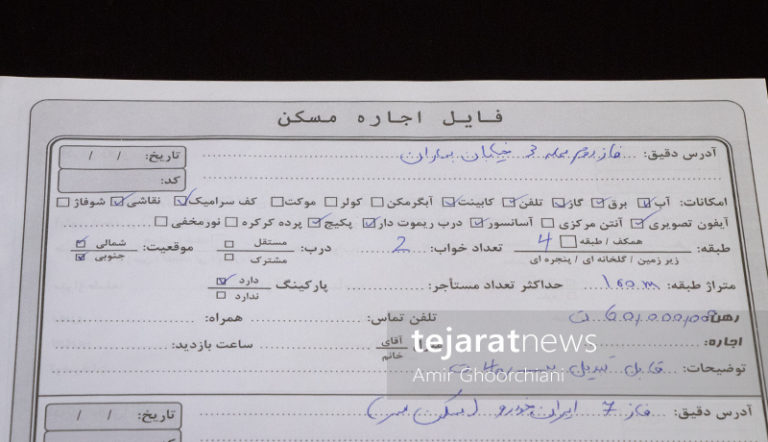 فایل اجاره مسکن
آدرس دقیق: فاز دوم محله 3 خیابان بهاران
تاریخ: / /
کد:
امکانات: آب برق گاز تلفن کابینت آبگرمکن کولر موکت کف سرامیک نقاشی شوفاژ
آیفون تصویری آنتن مرکزی آسانسور درب ریموت دار پکیج پرده کرکره نورمخفی
طبقه: همکف / طبقه 4 تعداد خواب: 2 درب: مستقل موقعیت: شمالی
زیر زمین / گلخانه ای / پنجره ای مشترک جنوبی
متراژ طبقه: 100 m حداکثر تعداد مستأجر: پارکینگ دارد
ندارد
رهن: 60,000,000 ت تلفن تماس: همراه:
اجاره: آقای ساعت بازدید:
خانم
توضیحات: قابل تبدیل
tejaratnews
Amir Ghoorchiani
آدرس دقیق: فاز 7 ایران خودرو (مسکن مهر)
تاریخ: / /